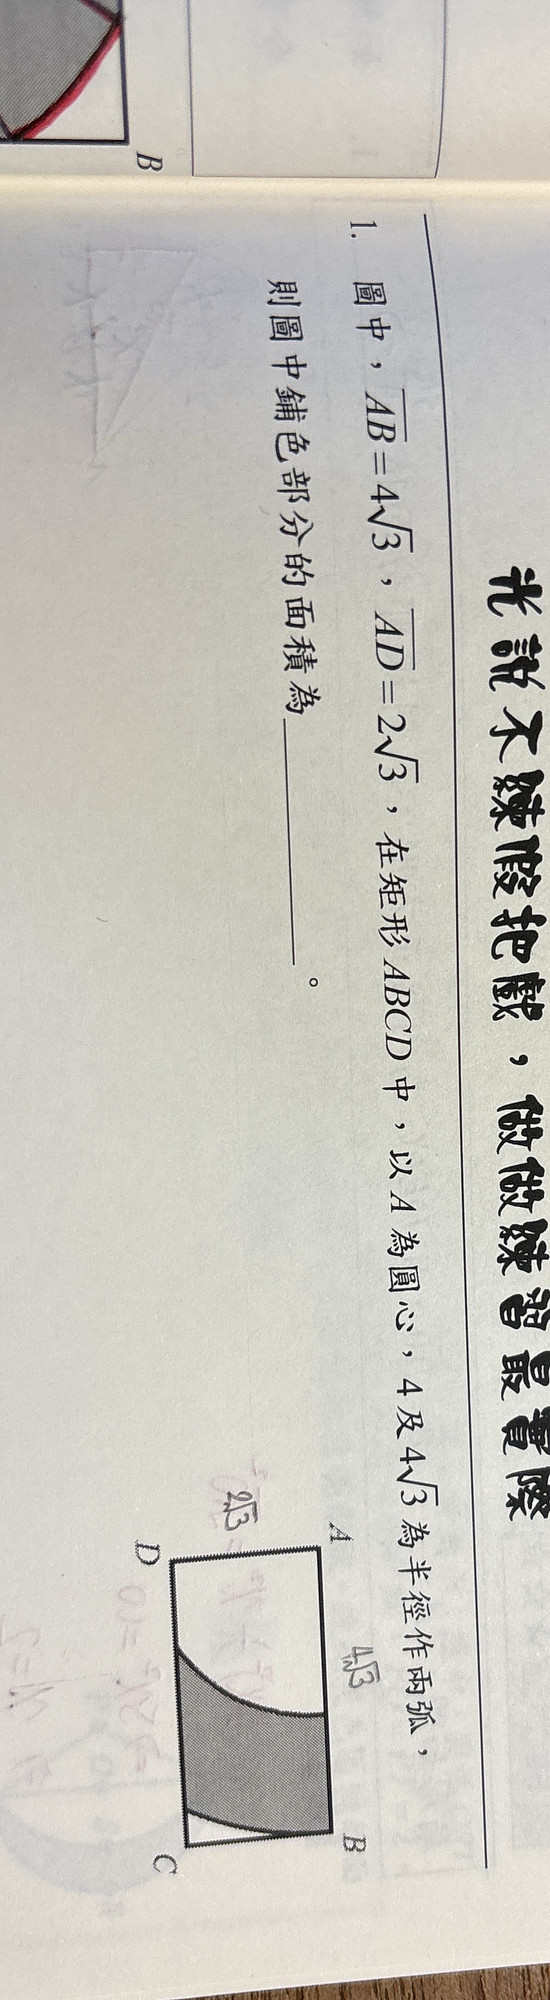 光說不練假把戲，做做練習最實際
1. 圖中，AB=4√3，AD=2√3，在矩形ABCD中，以A為圓心，4及4√3為半徑作兩弧，
則圖中鋪色部分的面積為＿＿＿＿＿＿。
A
4√3
B
2√3
D
C
B